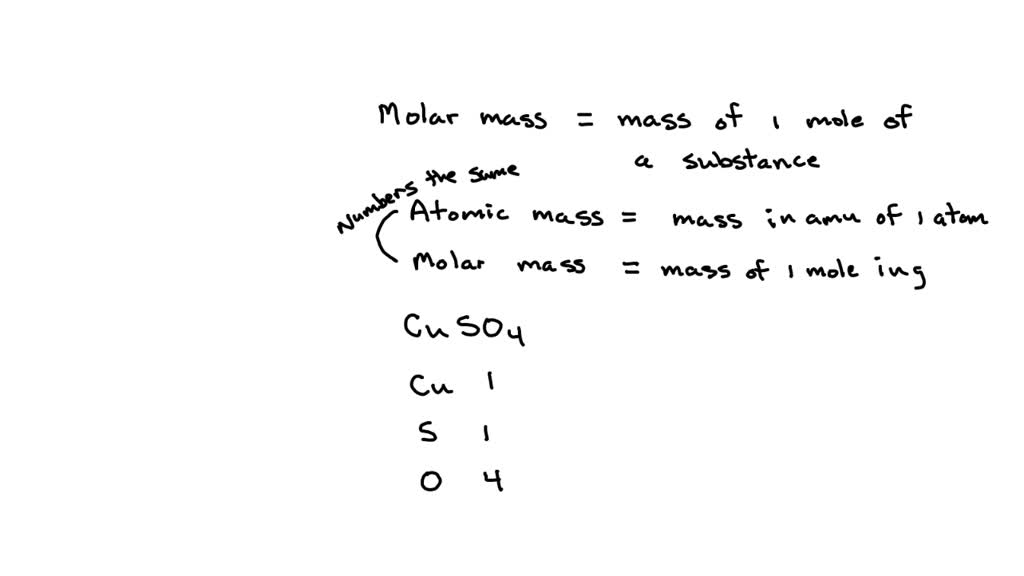 Molar mass = mass of 1 mole of
a substance
Numbers the same
Atomic mass = mass in amu of 1 atom
Molar mass = mass of 1 mole in g
CuSO4
Cu 1
S 1
O 4